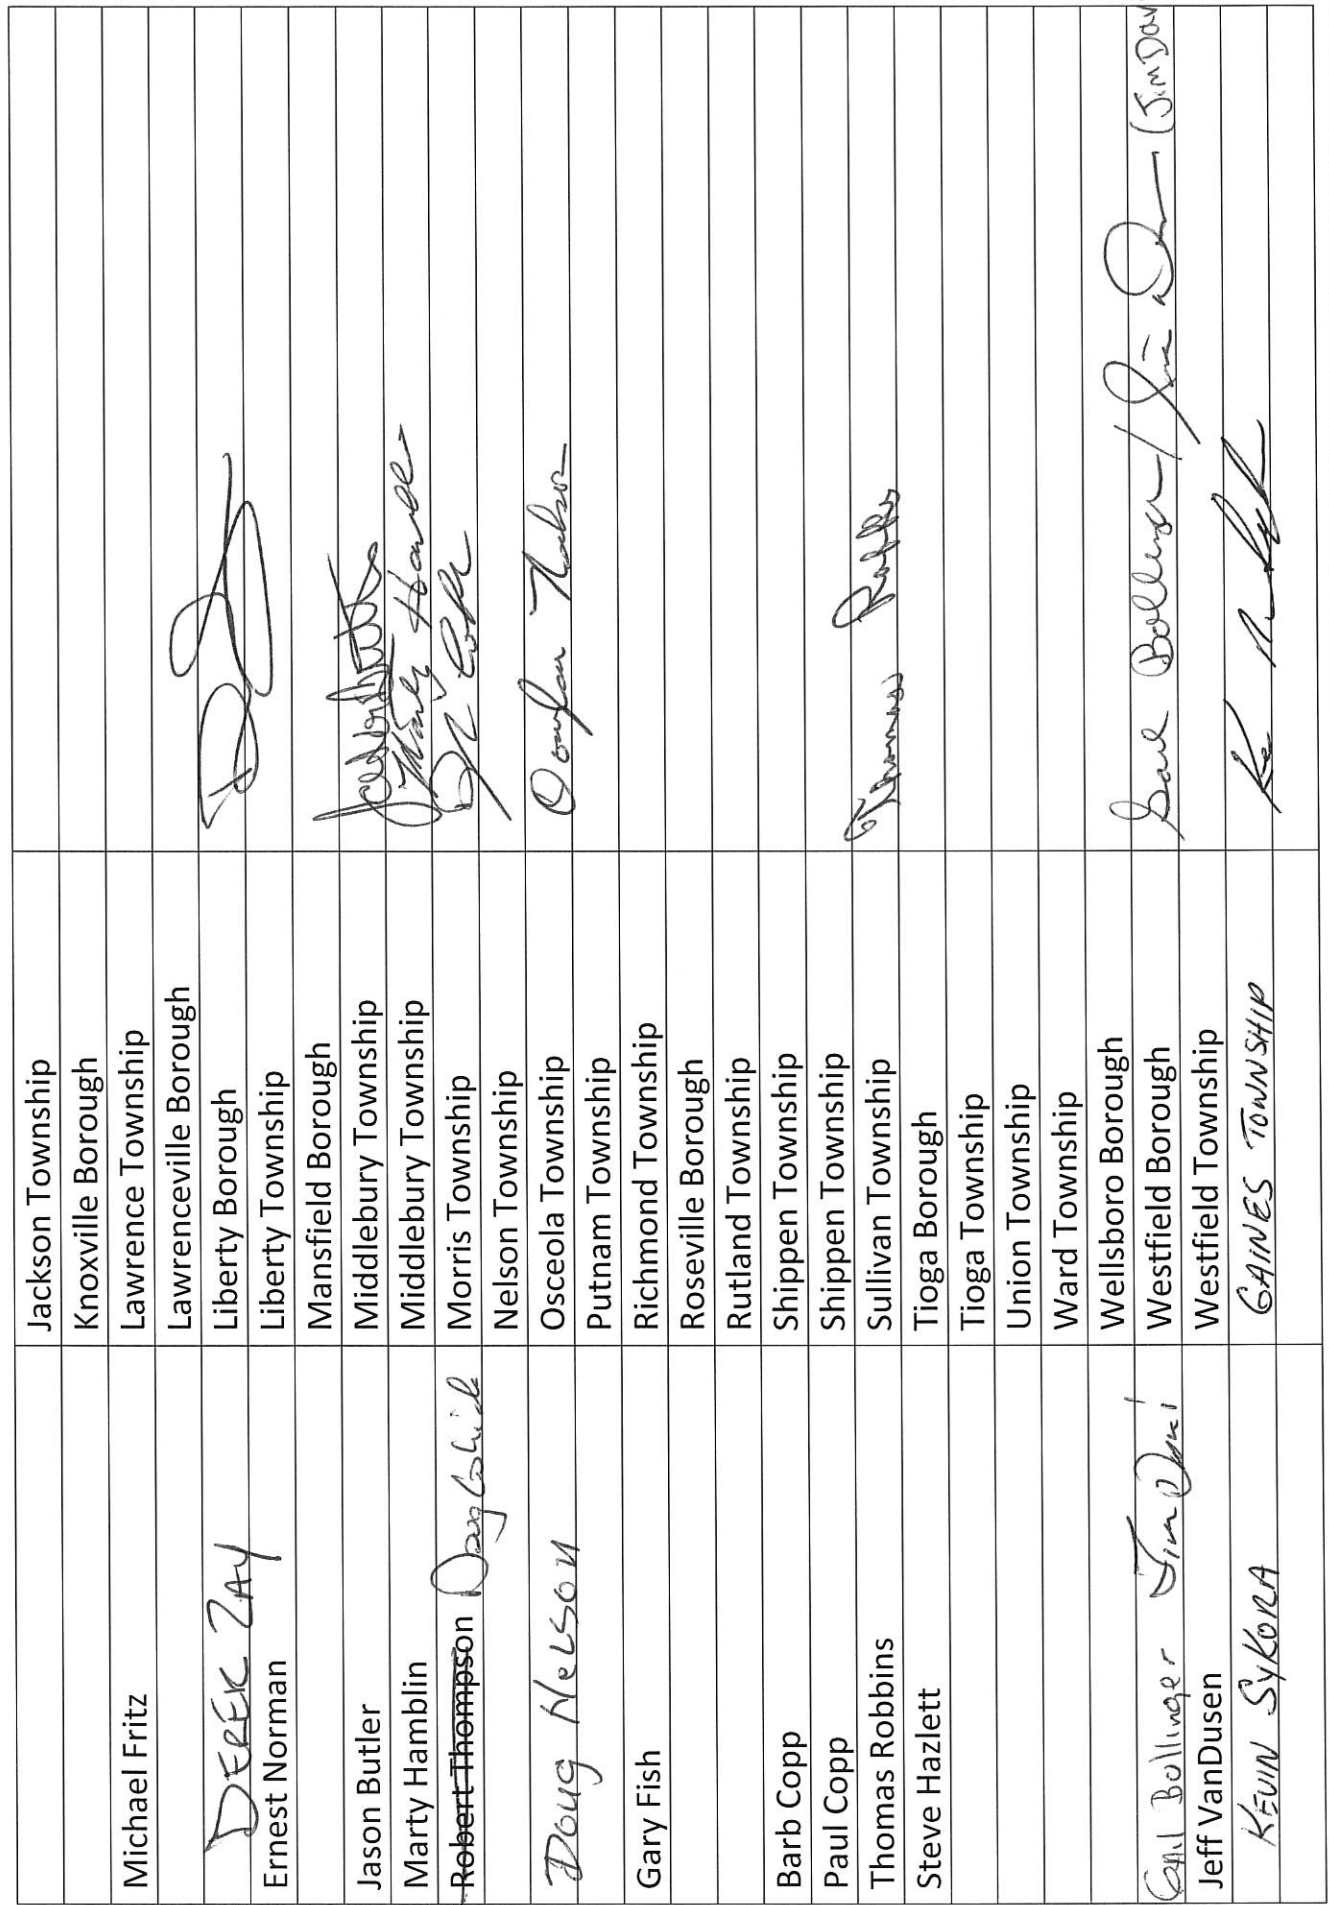 Jackson Township
Knoxville Borough
Michael Fritz Lawrence Township
Lawrenceville Borough
DEREK ZAY Liberty Borough
Ernest Norman Liberty Township
Mansfield Borough
Jason Butler Middlebury Township
Marty Hamblin Middlebury Township
Robert Thompson Doug Morris Township
Nelson Township
Doug Nelson Osceola Township Nelson
Putnam Township
Gary Fish Richmond Township
Roseville Borough
Rutland Township
Barb Copp Shippen Township
Paul Copp Shippen Township
Thomas Robbins Sullivan Township Thomas
Steve Hazlett Tioga Borough
Tioga Township
Union Township
Ward Township
Wellsboro Borough
Gail Bollinger Jim Westfield Borough Gail Bollinger / (Jim Dav
Jeff VanDusen Westfield Township
KEVIN SYKORA GAINES TOWNSHIP